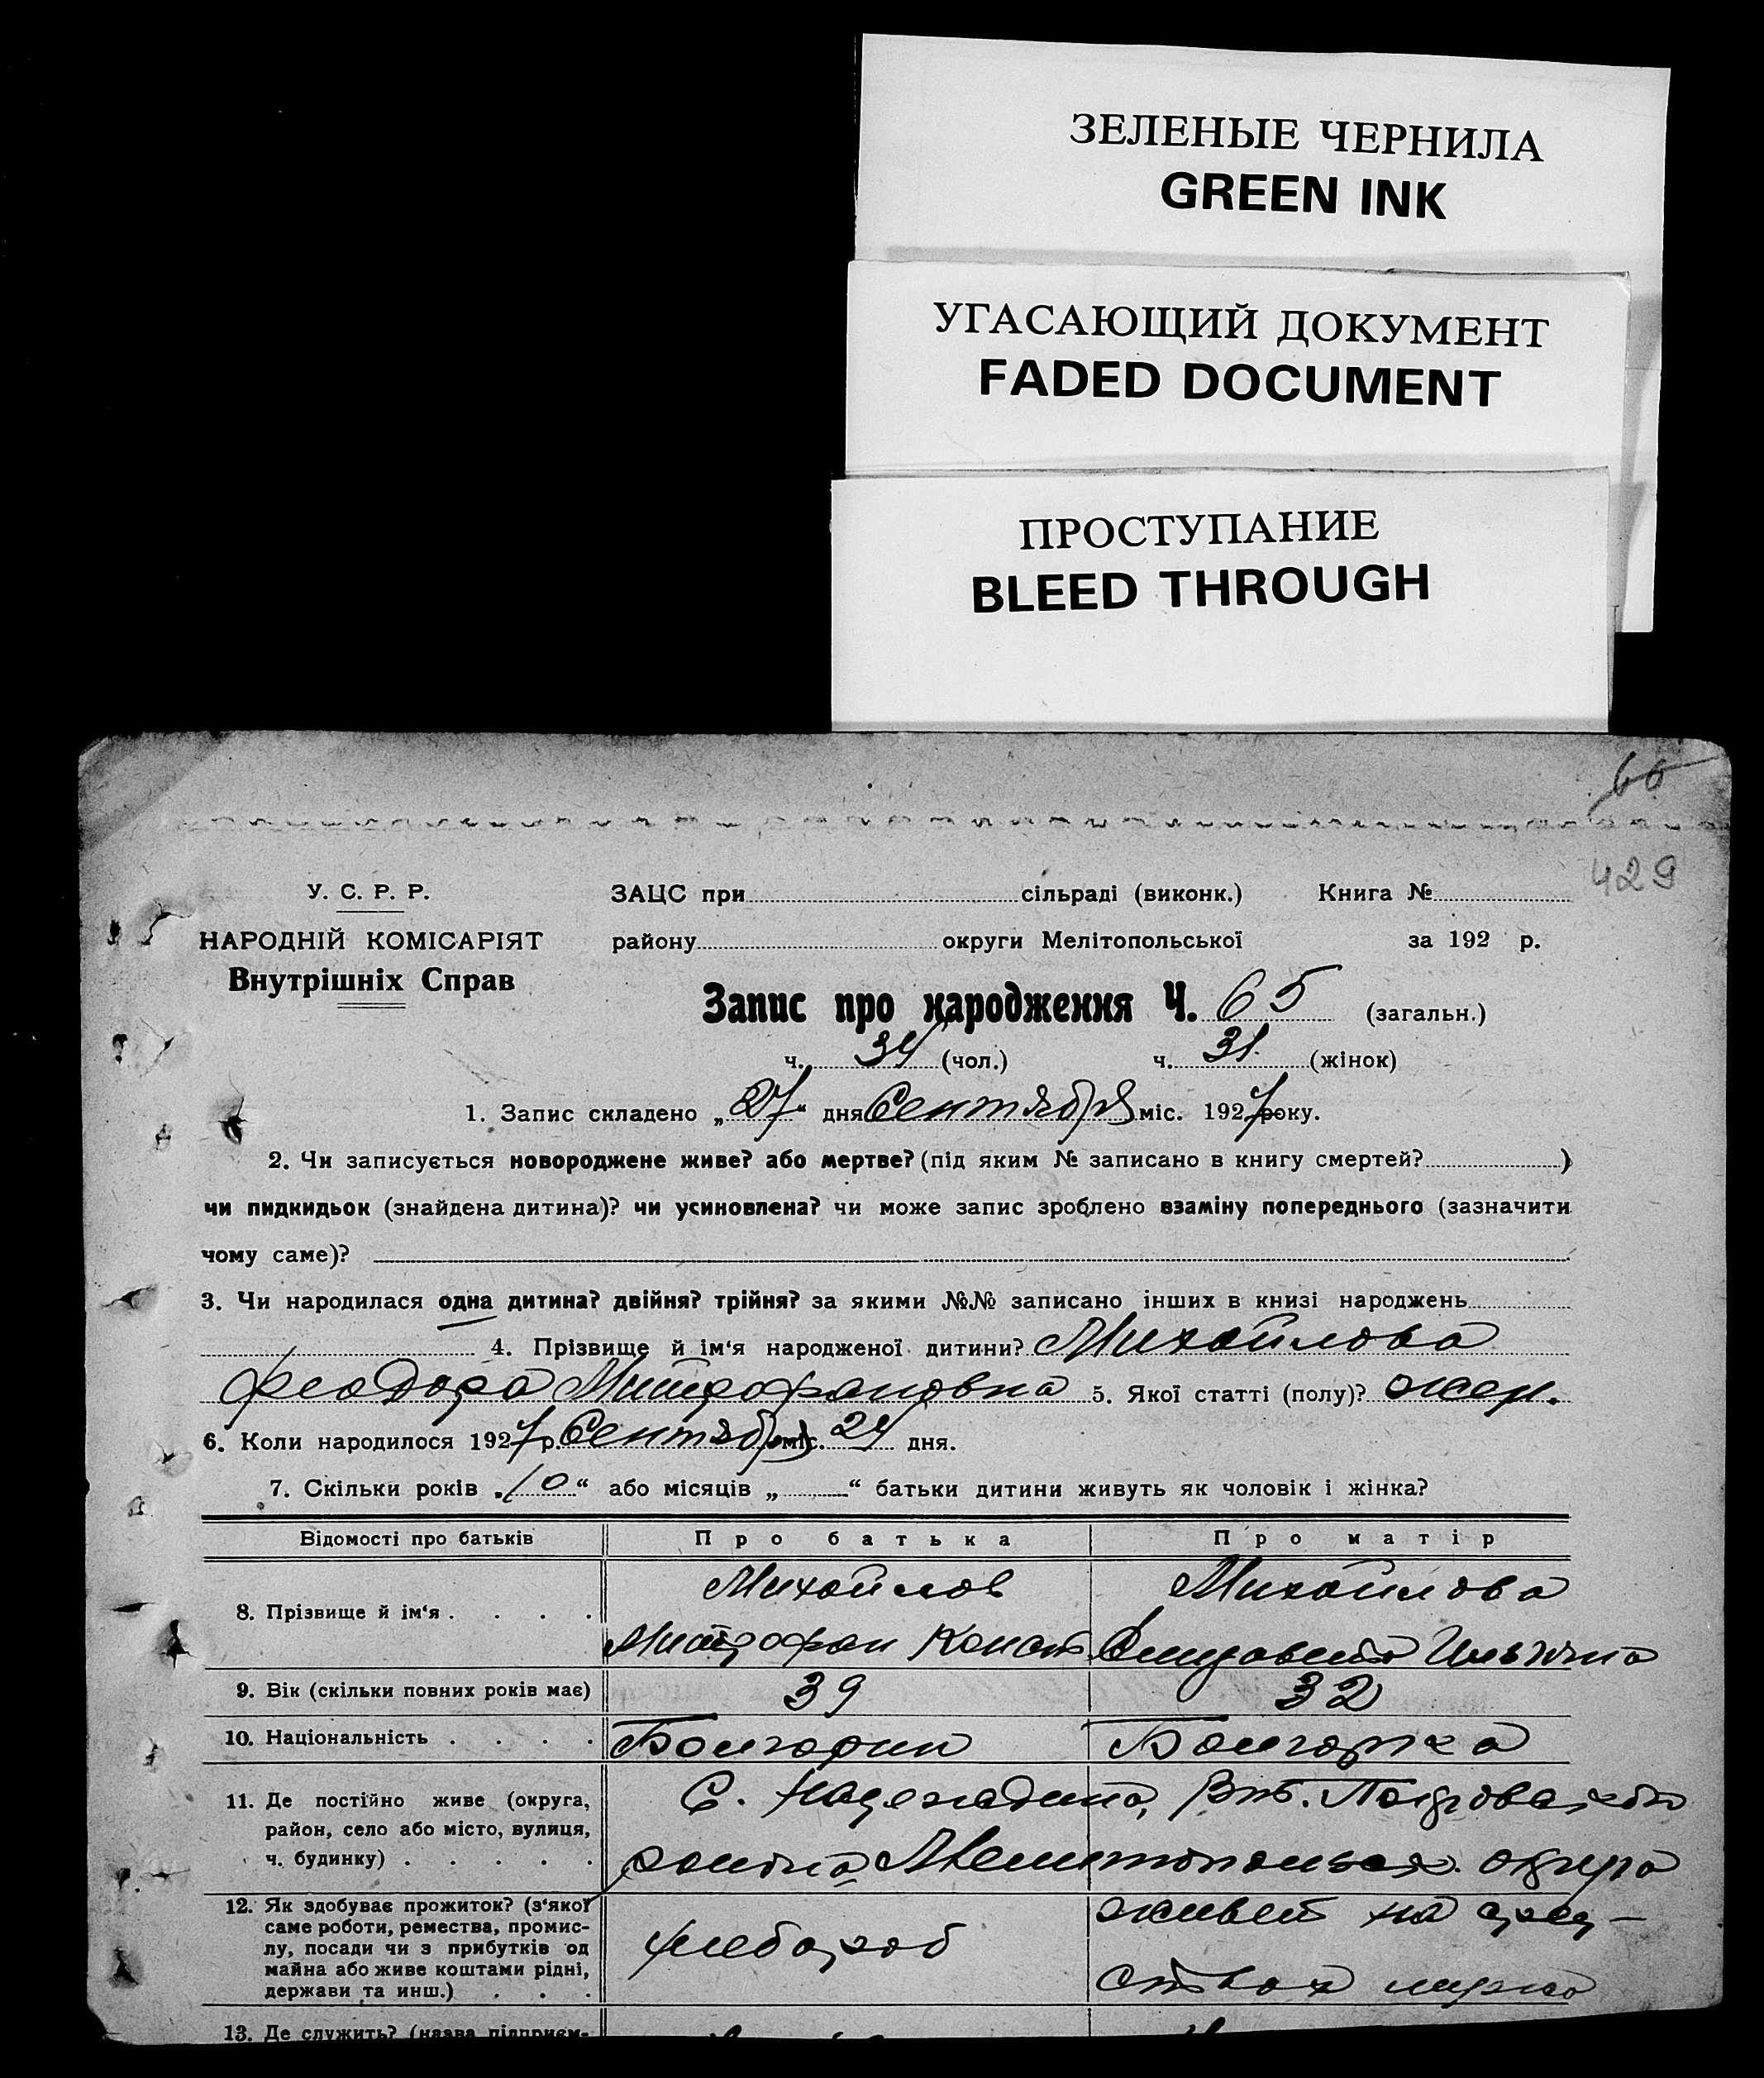 ЗЕЛЕНЫЕ ЧЕРНИЛА
GREEN INK
УГАСАЮЩИЙ ДОКУМЕНТ
FADED DOCUMENT
ПРОСТУПАНИЕ
BLEED THROUGH
66
429
У. С. Р. Р. ЗАЦС при сільраді (виконк.) Книга №
НАРОДНІЙ КОМІСАРІЯТ району округи Мелітопольської за 192 р.
Внутрішніх Справ
Запис про народження Ч. 65 (загальн.)
ч. 34 (чол.) ч. 31. (жінок)
1. Запис складено „27“ дня Сентября міс. 1927 року.
2. Чи записується новороджене живе? або мертве? (під яким № записано в книгу смертей? )
чи пидкидьок (знайдена дитина)? чи усиновлена? чи може запис зроблено взаміну попереднього (зазначити
чому саме)?
3. Чи народилася одна дитина? двійня? трійня? за якими №№ записано інших в книзі народжень
4. Прізвище й ім‘я народженої дитини? Михайлова
Феодора Митрофановна 5. Якої статті (полу)? жен.
6. Коли народилося 1927 р. Сентября міс. 24 дня.
7. Скільки років „10“ або місяців „ “ батьки дитини живуть як чоловік і жінка?
Відомості про батьків Про батька Про матір
8. Прізвище й ім‘я . . . .
Михайлов
Митрофан Конст
Михайлова
Елизавета Ильична
9. Вік (скільки повних років має) 39 32
10. Національність . . . . Болгарин Болгарка
11. Де постійно живе (округа,
район, село або місто, вулиця,
ч. будинку) . . . . .
С. Надеждино,
района Мелитопольская округа
12. Як здобуває прожиток? (з‘якої
саме роботи, ремества, промис-
лу, посади чи з прибутків од
майна або живе коштами рідні,
держави та инш.) . . .
хлебороб
живет на сред-
ствах мужа
13. Де служить? (назва підприєм-